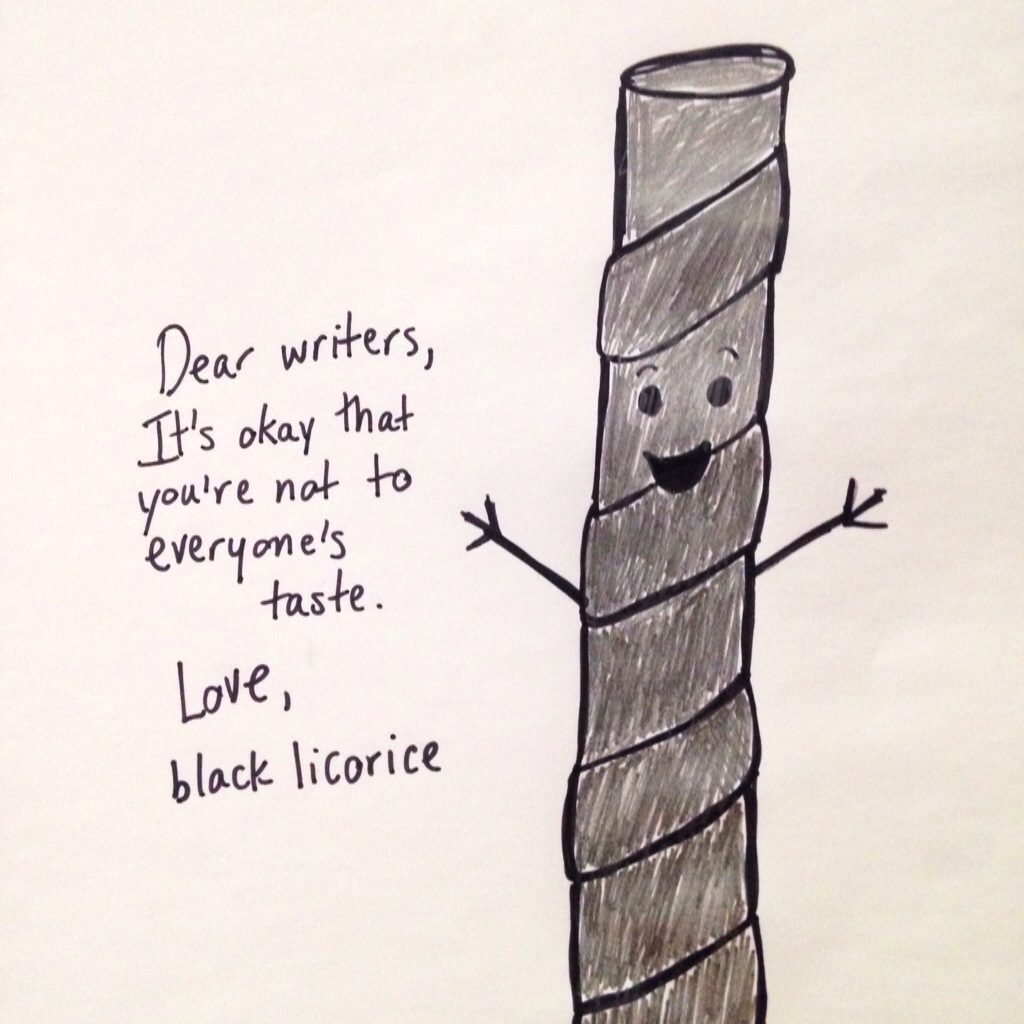 Dear writers,
It's okay that
you're not to
everyone's
taste.
Love,
black licorice